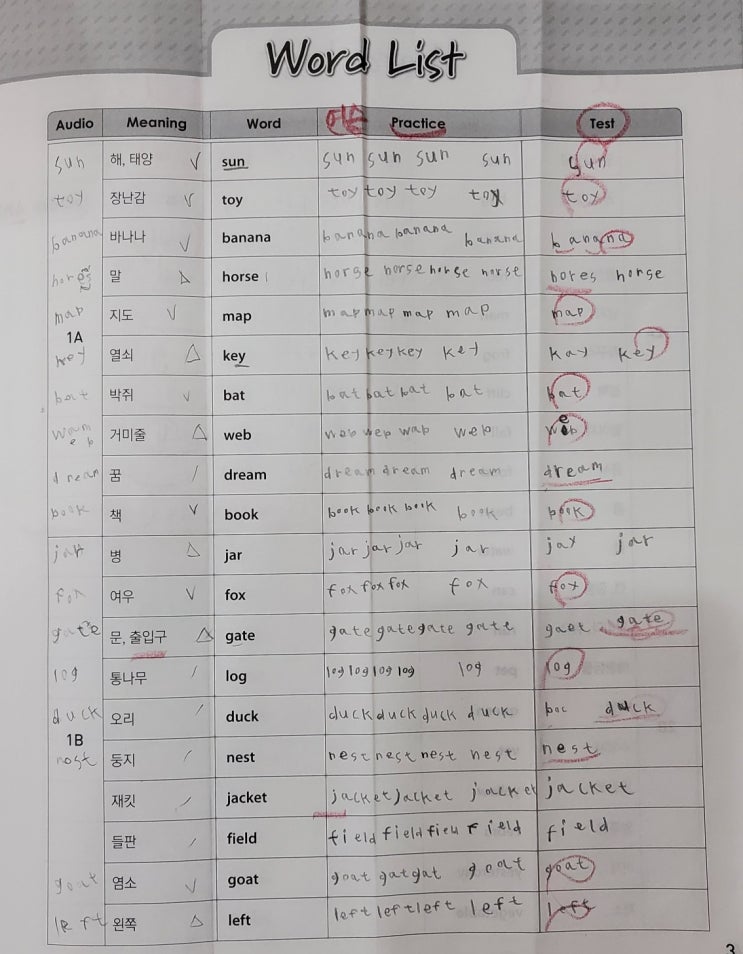 Word List
Audio Meaning Word 어순 Practice Test
sun 해, 태양 sun sun sun sun sun sun
toy 장난감 toy toy toy toy toy toy
banana 바나나 banana banana banana banana banana
말 horse horse horse horse horse hores horse
map 지도 map map map map map map
1A
key 열쇠 key key key key key kay key
bat 박쥐 bat bat bat bat bat bat
거미줄 web web wep wap wep
꿈 dream dream dream dream dream
book 책 book book book book book book
병 jar jar jar jar jar jar
fox 여우 fox fox fox fox fox fox
gate 문, 출입구 gate gate gate gate gate gaet gate
log 통나무 log log log log log log log
duck 오리 duck duck duck duck duck duck
1B
nost 둥지 nest nest nest nest nest nest
재킷 jacket jacket jacket jacket jacket
들판 field field field field field
goat 염소 goat goat gat gat goat goat
left 왼쪽 left left left left left left
3